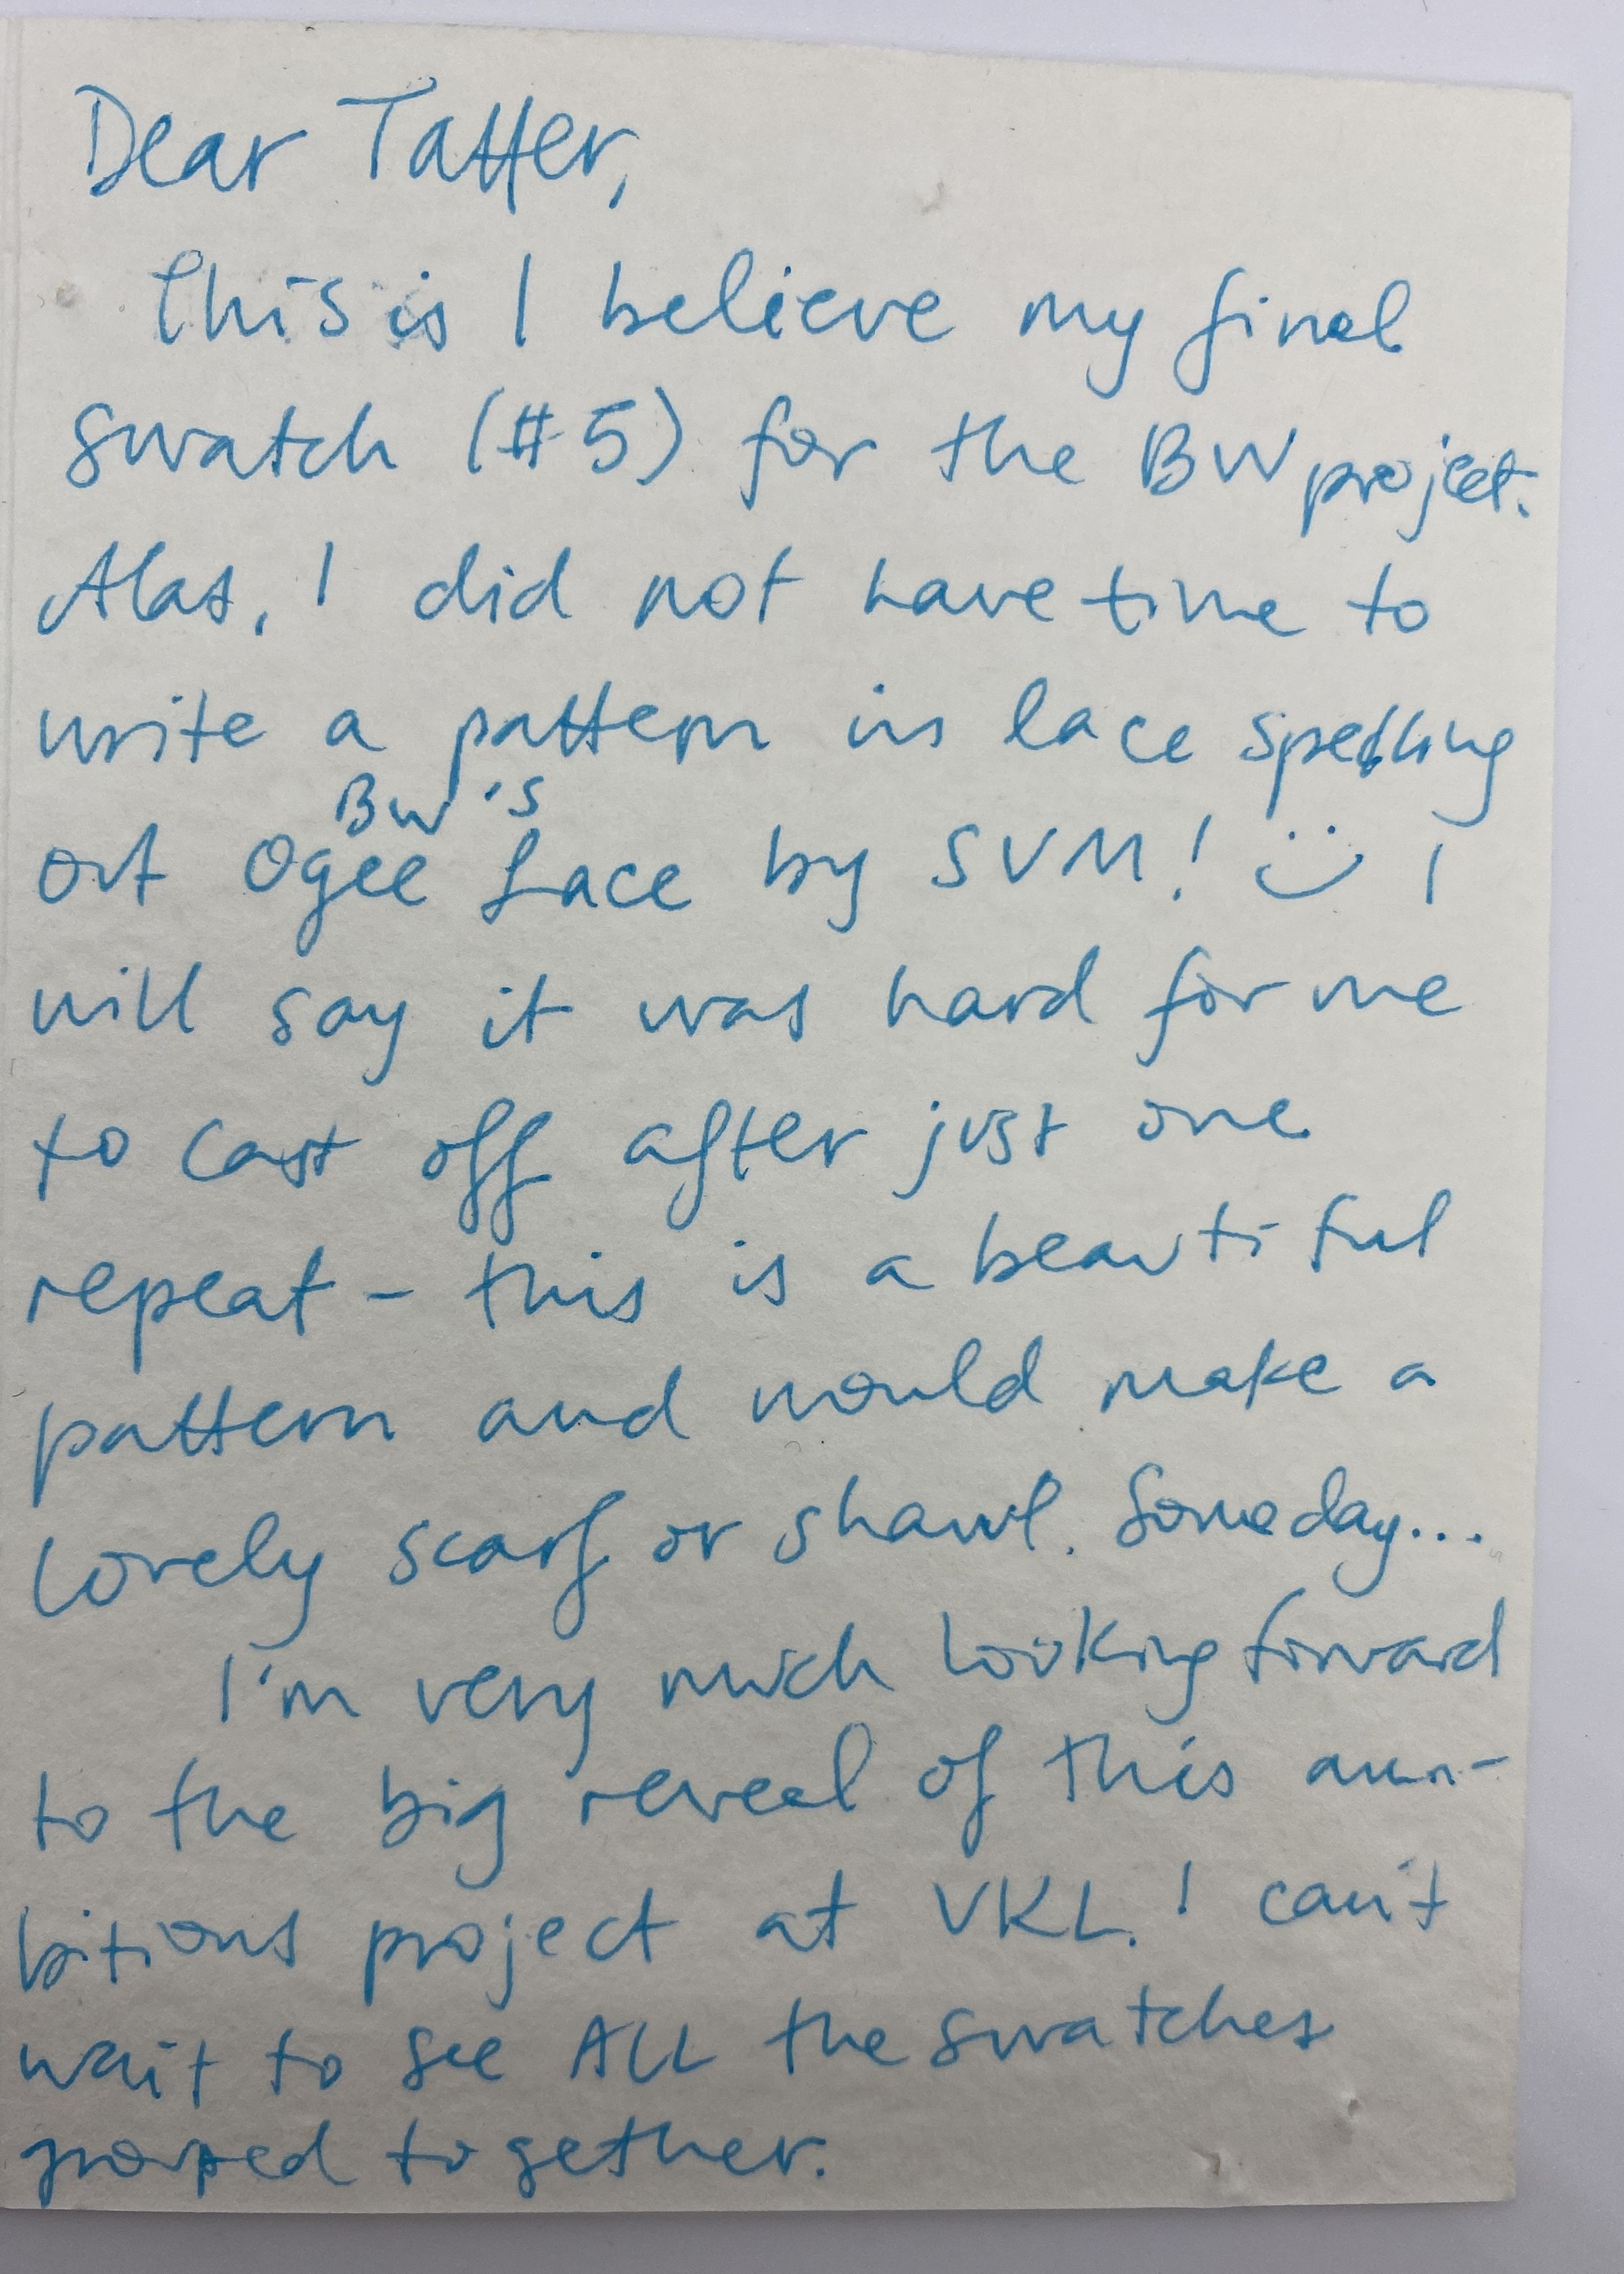 Dear Tatter,
This is I believe my final
swatch (#5) for the BW project.
Alas, I did not have time to
write a pattern in lace spelling
BW's
out Ogee Lace by SVM! :) I
will say it was hard for me
to cast off after just one
repeat - this is a beautiful
pattern and would make a
lovely scarf or shawl. Someday...
I'm very much looking forward
to the big reveal of this am-
bitious project at VKL. I can't
wait to see ALL the swatches
grouped together.